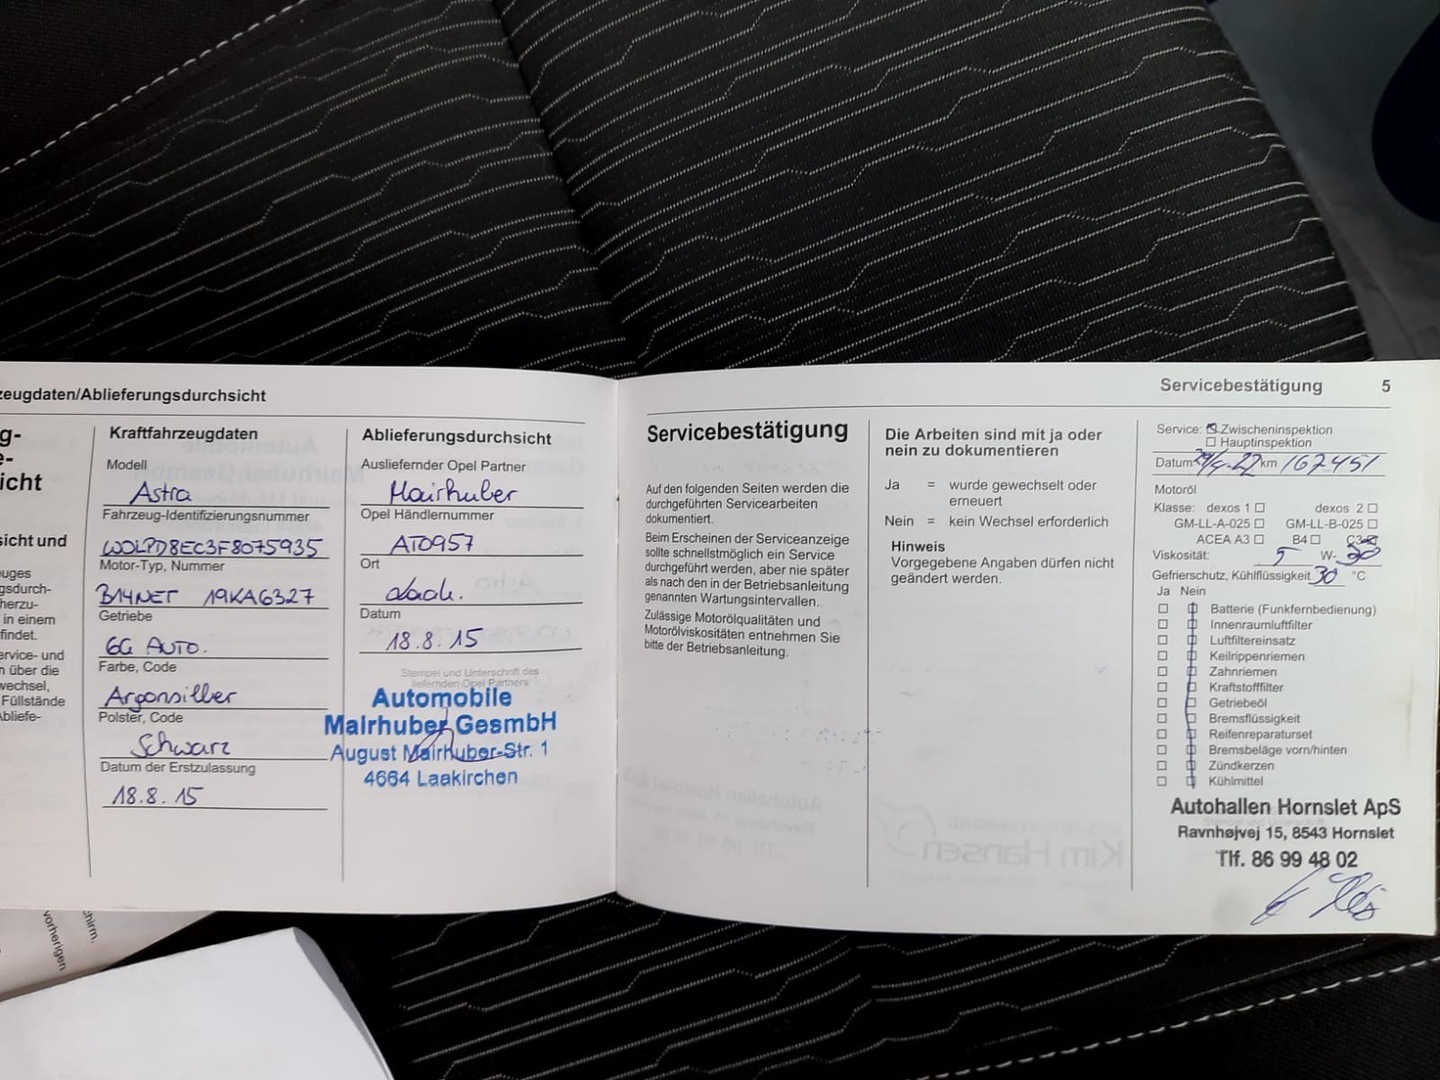 zeugdaten/Ablieferungsdurchsicht
g-
e-
icht
sicht und
euges
gsdurch-
herzu-
in einem
findet.
ervice- und
n über die
wechsel,
Füllstände
Abliefe-
Kraftfahrzeugdaten
Modell
Astra
Fahrzeug-Identifizierungsnummer
WOLPD8EC3F8075935
Motor-Typ, Nummer
B14NET 19KA6327
Getriebe
6G AUTO.
Farbe, Code
Argonsilber
Polster, Code
Schwarz
Datum der Erstzulassung
18.8.15
Ablieferungsdurchsicht
Ausliefernder Opel Partner
Mairhuber
Opel Händlernummer
AT0957
Ort
Laak.
Datum
18.8.15
Stempel und Unterschrift des
liefernden Opel Partners
Automobile
Mairhuber GesmbH
August Mairhuber-Str. 1
4664 Laakirchen
Servicebestätigung 5
Servicebestätigung
Auf den folgenden Seiten werden die
durchgeführten Servicearbeiten
dokumentiert.
Beim Erscheinen der Serviceanzeige
sollte schnellstmöglich ein Service
durchgeführt werden, aber nie später
als nach den in der Betriebsanleitung
genannten Wartungsintervallen.
Zulässige Motorölqualitäten und
Motorölviskositäten entnehmen Sie
bitte der Betriebsanleitung.
Die Arbeiten sind mit ja oder
nein zu dokumentieren
Ja = wurde gewechselt oder
erneuert
Nein = kein Wechsel erforderlich
Hinweis
Vorgegebene Angaben dürfen nicht
geändert werden.
Service: Zwischeninspektion
Hauptinspektion
Datum km 167451
Motoröl
Klasse: dexos 1 dexos 2
GM-LL-A-025 GM-LL-B-025
ACEA A3 B4 C3
Viskosität: 5 W- 30
Gefrierschutz, Kühlflüssigkeit 30 °C
Ja Nein
Batterie (Funkfernbedienung)
Innenraumluftfilter
Luftfiltereinsatz
Keilrippenriemen
Zahnriemen
Kraftstofffilter
Getriebeöl
Bremsflüssigkeit
Reifenreparaturset
Bremsbeläge vorn/hinten
Zündkerzen
Kühlmittel
Autohallen Hornslet ApS
Ravnhøjvej 15, 8543 Hornslet
Tlf. 86 99 48 02
chirm.
vorherigen